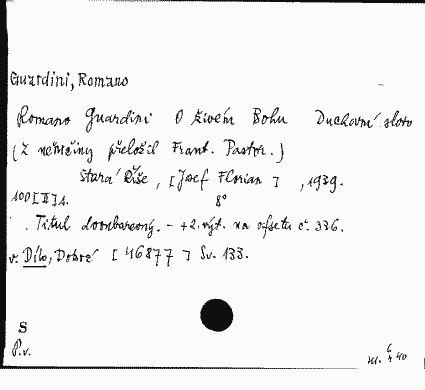 Guardini, Romano
Romano Guardini O živém Bohu Duchovní slovo
(Z němčiny přeložil Frant. Pastor.)
Stará Říše, [Josef Florian], 1939.
100 [II] 1. 8°
Titul dvoubarevný. - + 2. výt. na ofsetu č. 336.
v. Dílo, Dobré [46877] Sv. 133.
S
P.v.
6
40